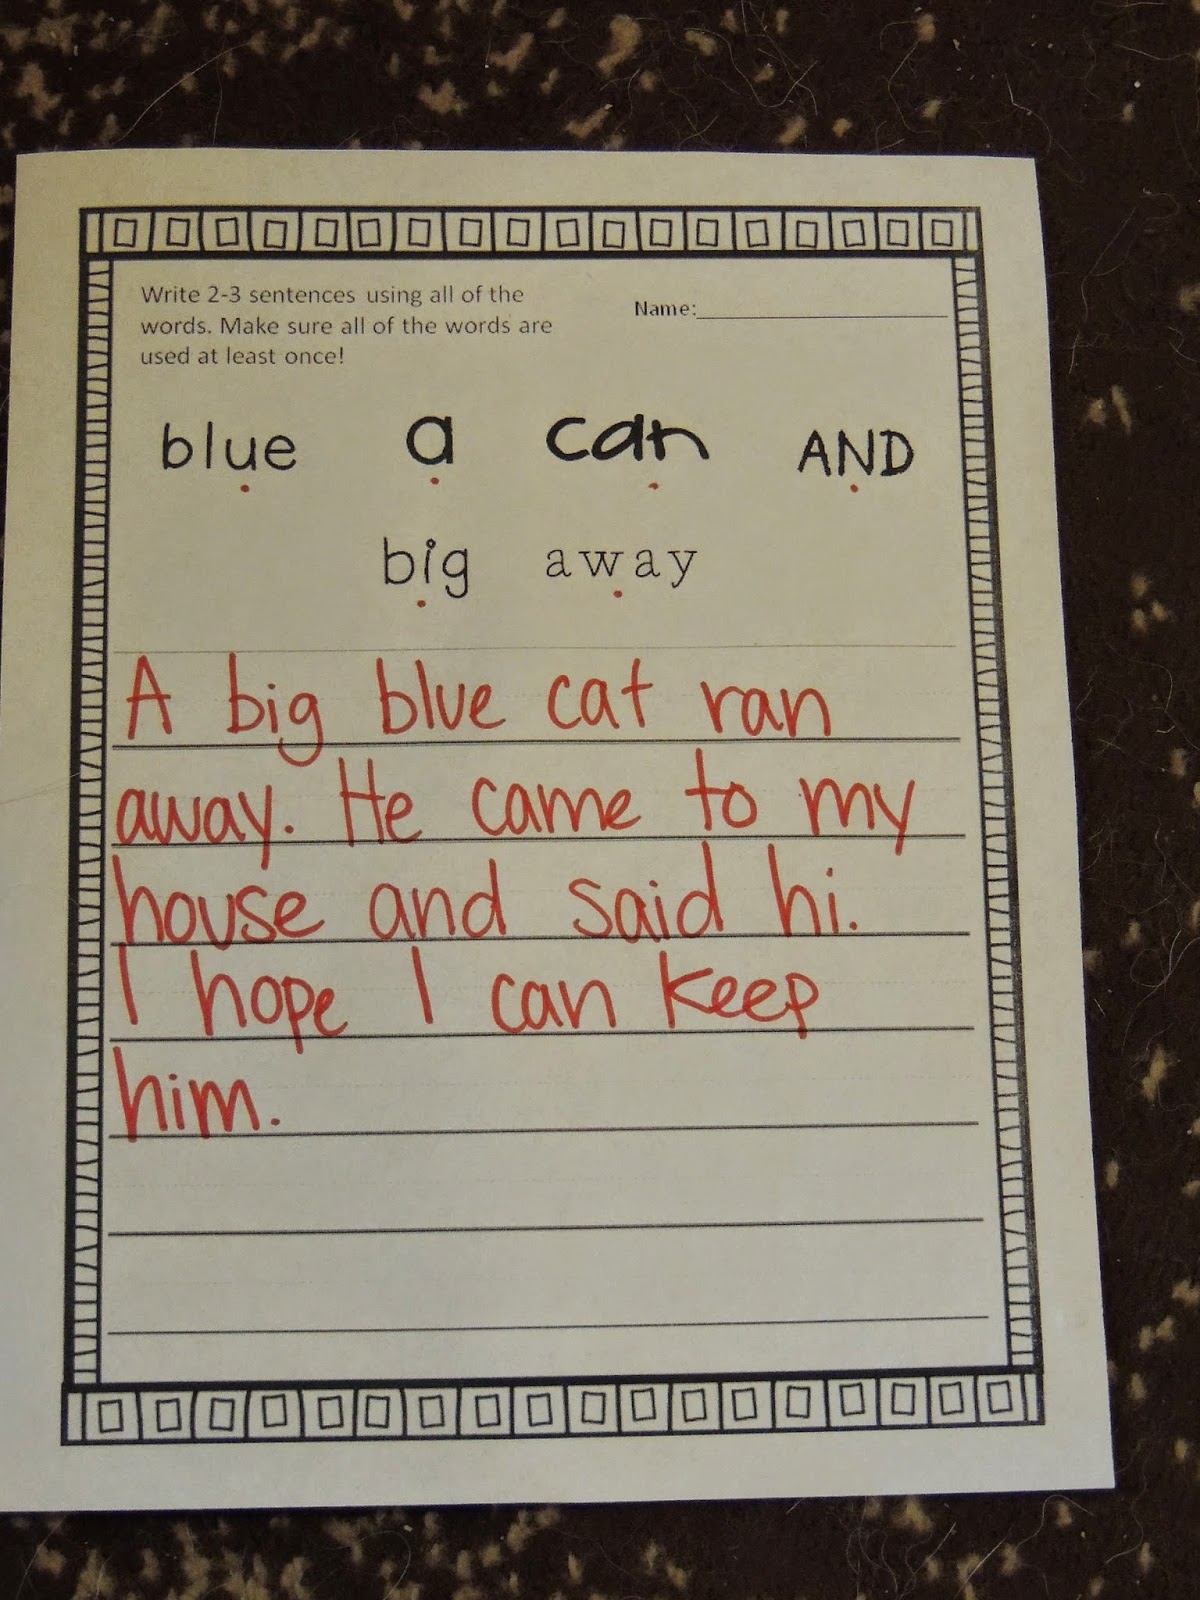 Write 2-3 sentences using all of the
words. Make sure all of the words are
used at least once!
Name:
blue a can AND
big away
A big blue cat ran
away. He came to my
house and said hi.
I hope I can keep
him.